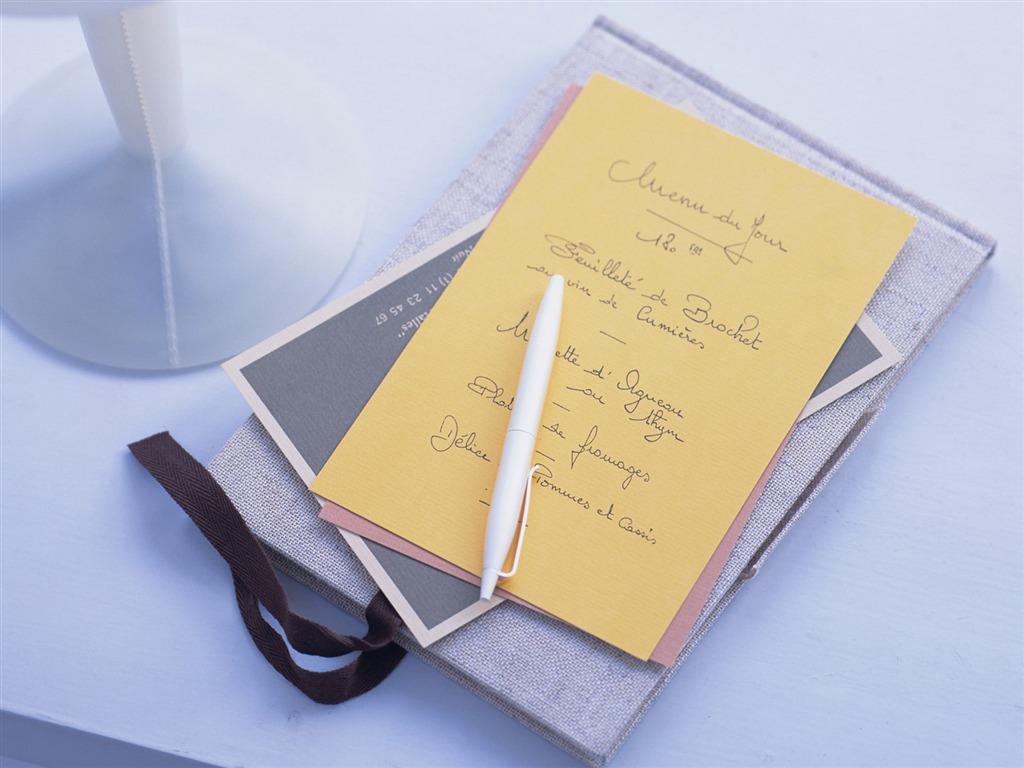 Menu du Jour
180 FRS
Feuilleté de Brochet
au vin de Cumières
d'Agneau
au thym
de fromages
Délice Pommes et Cassis
(1) 11 23 45 67